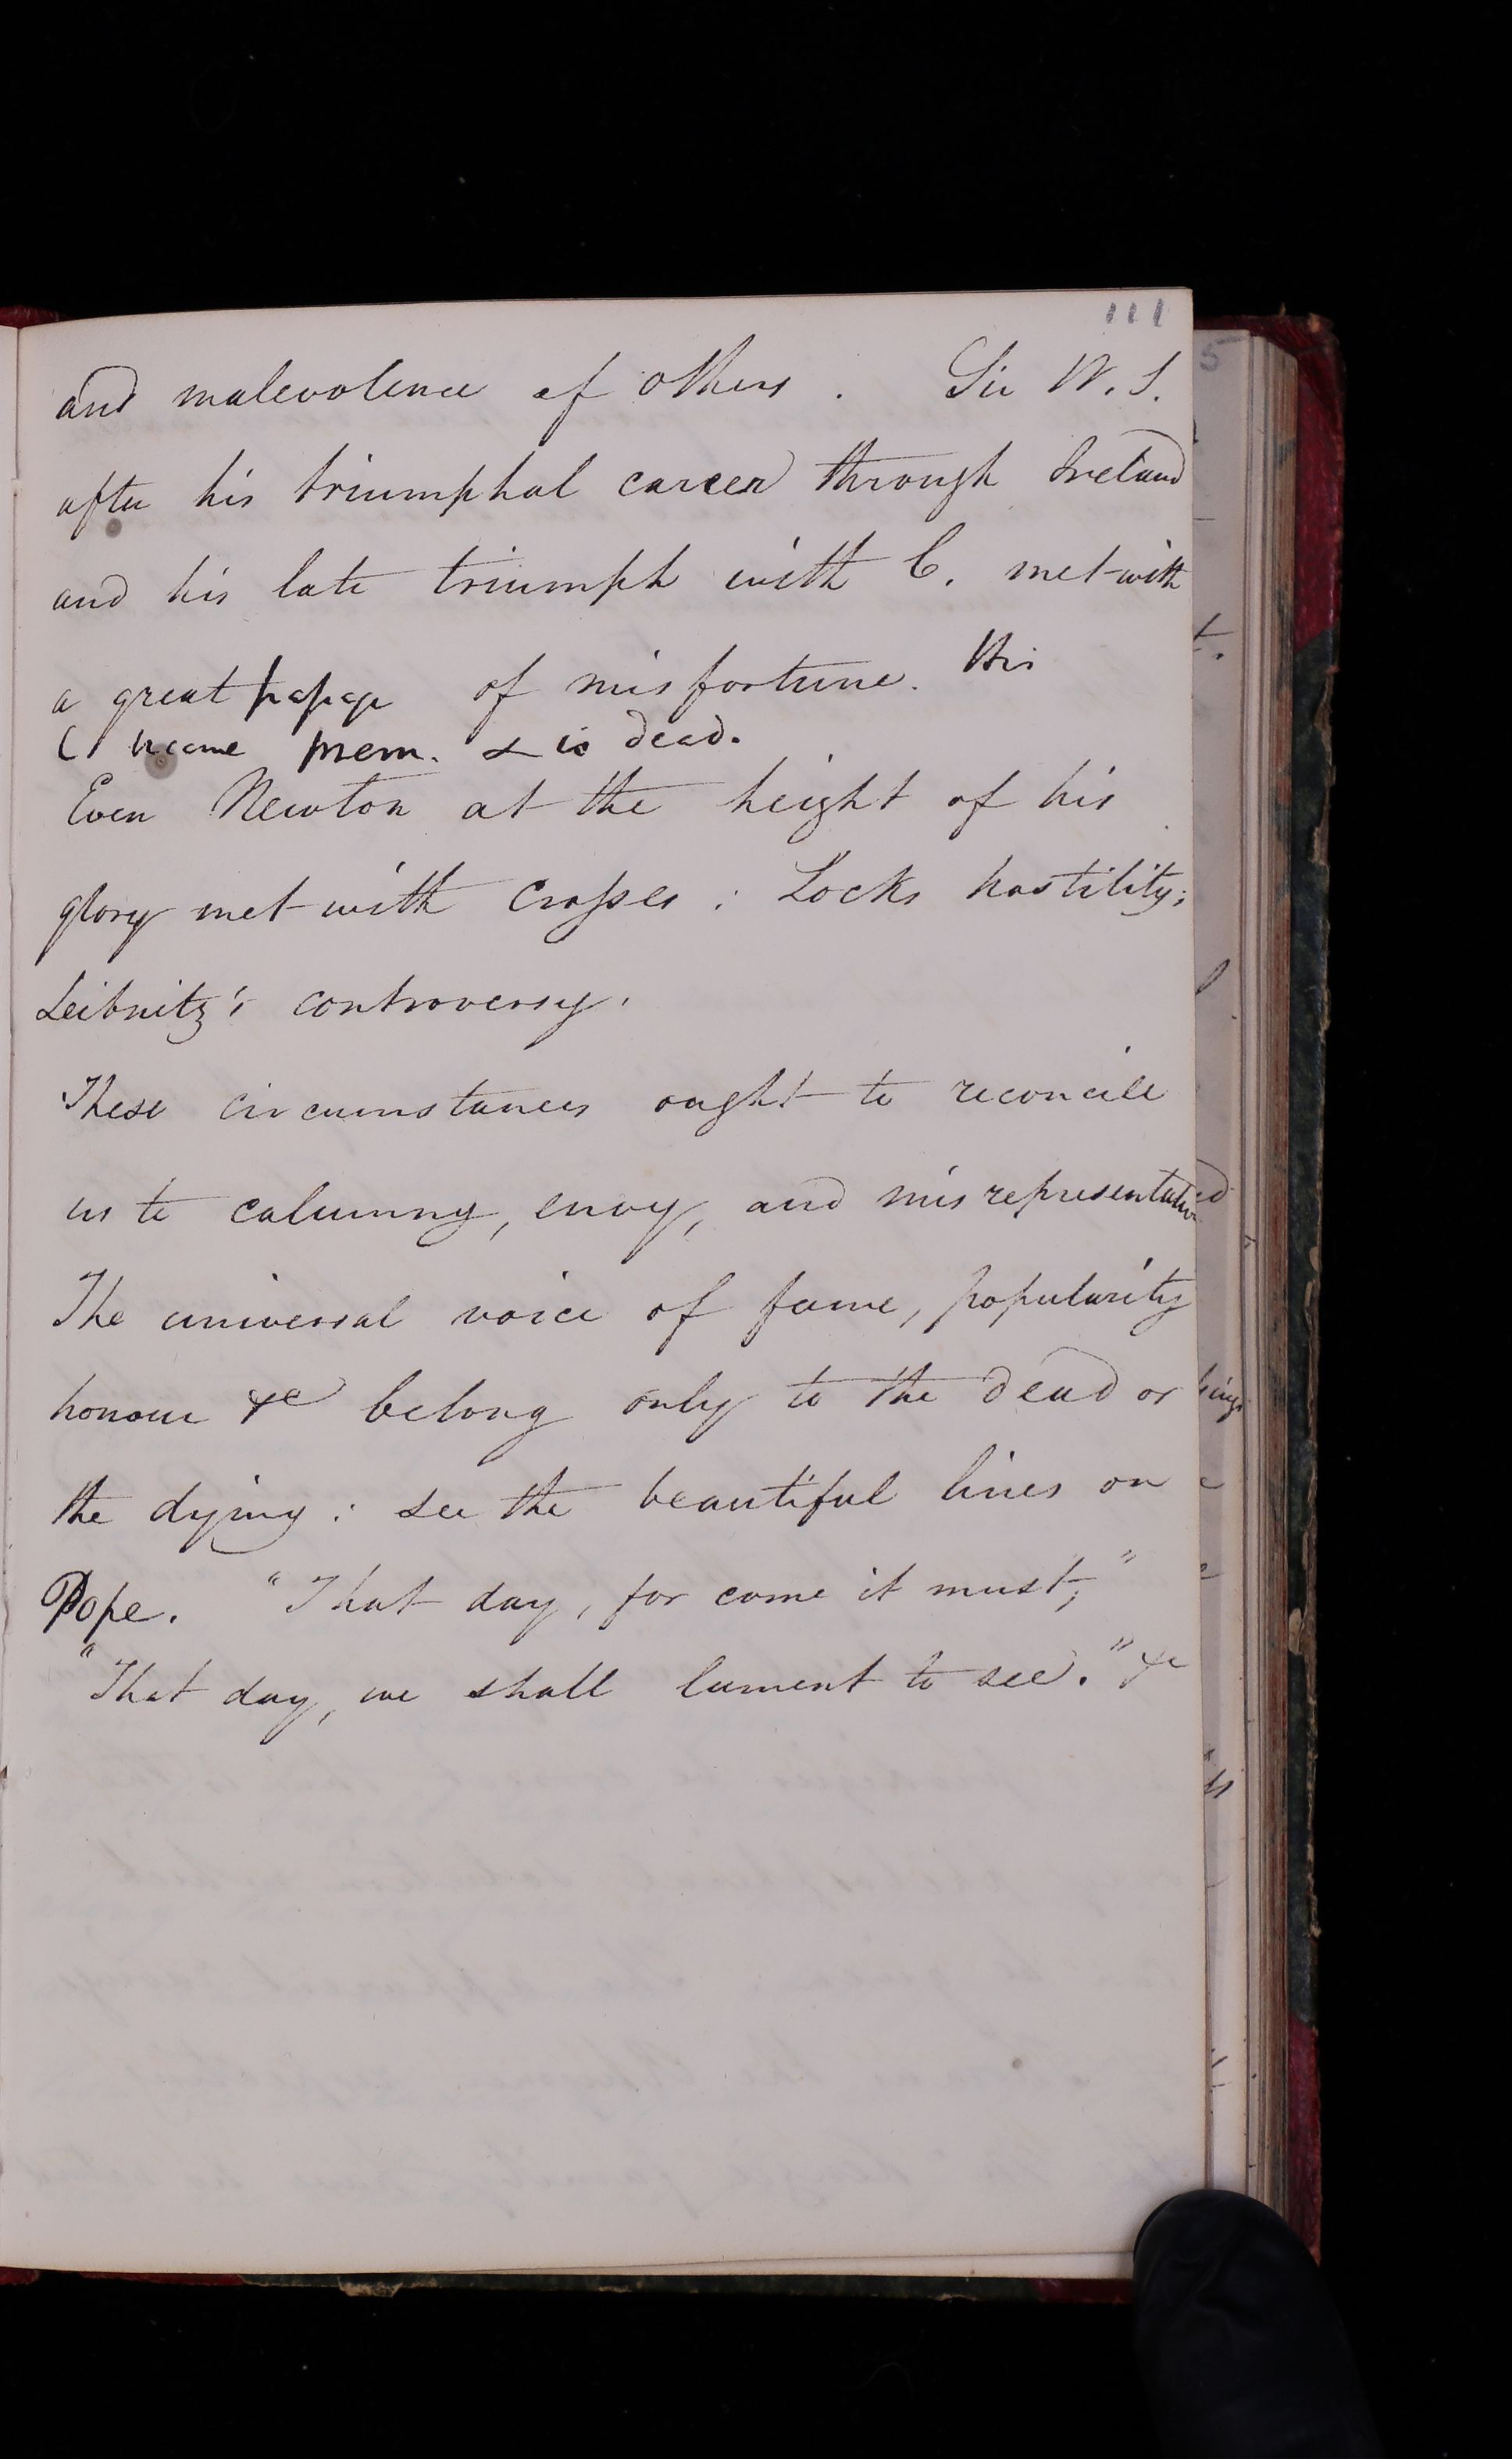 111
and malevolence of others. Sir W. S.
after his triumphal career through Ireland
and his late triumph with C. met with
a great passage of misfortune. This
C became prem. & is dead.
Even Newton at the height of his
glory met with crosses: Locks hostility;
Leibnitz's controversy.
These circumstances ought to reconcile
us to calumny, envy, and misrepresentation
The universal voice of fame, popularity
honour &c belong only to the dead or
the dying: see the beautiful lines on
Pope. "That day, for come it must;"
"That day, we shall lament to see." &c